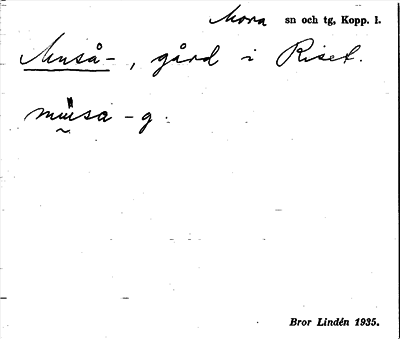 Mora sn och tg, Kopp. l.
Muså-, gård i Riset.
mùsa-g.
Bror Lindén 1935.